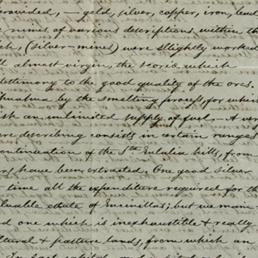 provided, - gold, silver, copper, iron, lead
mines of various descriptions within the
(silver-mines) were slightly worked
almost virgin, the scoria which
testimony to the good quality of the ores.
Chihuahua by the smelting process, for which
an unlimited supply of fuel. A
are describing consists in certain ranges
continuation of the Sta Eulalia hills, from
have been extracted. One good silver
time all the expenditure required for the
valuable estate of Encinillas; but we
one which is inexhaustible & really
pasture lands, from which an
in